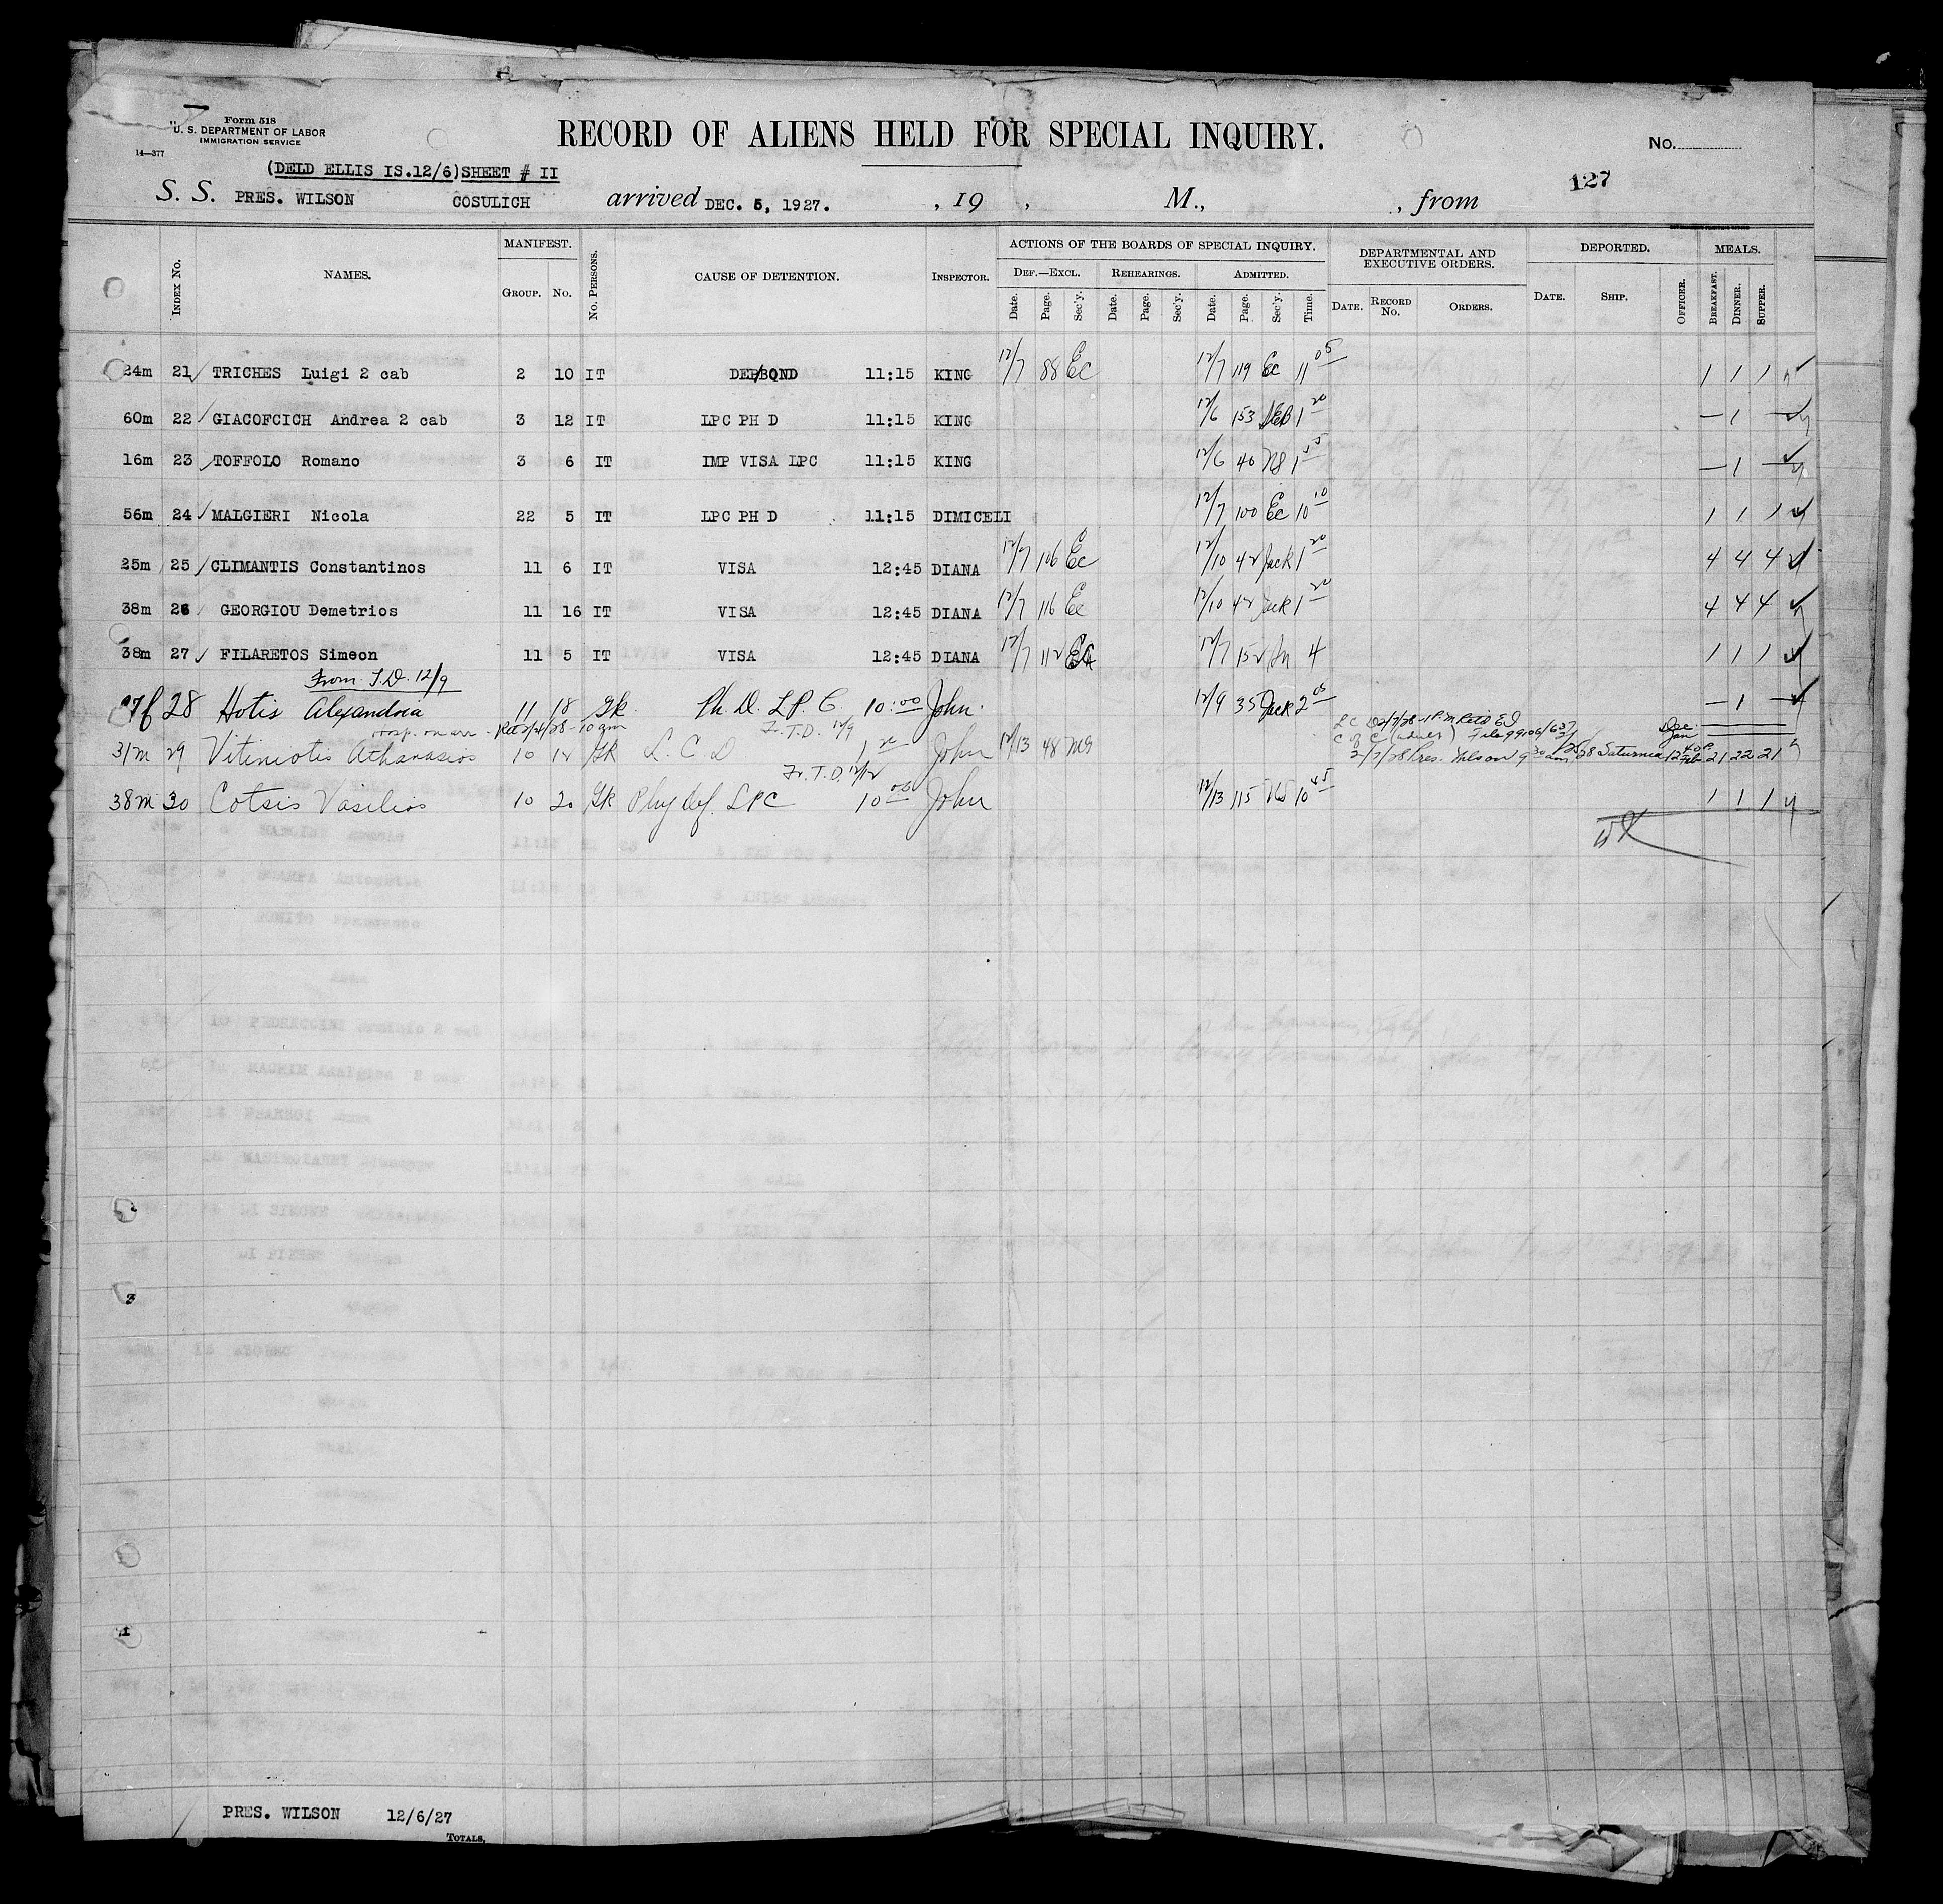 Form 518
U. S. DEPARTMENT OF LABOR
IMMIGRATION SERVICE
14—377
RECORD OF ALIENS HELD FOR SPECIAL INQUIRY.
No.
(DELD ELLIS IS.12/6)SHEET # II
127
S. S. PRES. WILSON COSULICH arrived DEC. 5, 1927. , 19 , M., , from
INDEX No. NAMES. MANIFEST. GROUP. No. No. PERSONS. CAUSE OF DETENTION. INSPECTOR. ACTIONS OF THE BOARDS OF SPECIAL INQUIRY. DEPARTMENTAL AND EXECUTIVE ORDERS. DEPORTED. MEALS.
DEF.—EXCL. REHEARINGS. ADMITTED.
Date. Page. Sec'y. Date. Page. Sec'y. Date. Page. Sec'y. Time. DATE. RECORD No. ORDERS. DATE. SHIP. OFFICER. BREAKFAST. DINNER. SUPPER.
24m 21 TRICHES Luigi 2 cab 2 10 IT 11:15 KING 12/7 88 Ec 12/7 119 Ec 11 05 1 1 1
60m 22 GIACOFCICH Andrea 2 cab 3 12 IT LPC PH D 11:15 KING 12/6 153 1 20 — 1 —
16m 23 TOFFOLO Romano 3 6 IT IMP VISA LPC 11:15 KING 12/6 40 1 — 1 —
56m 24 MALGIERI Nicola 22 5 IT LPC PH D 11:15 DIMICELI 12/7 100 Ec 10 10 1 1 1
25m 25 CLIMANTIS Constantinos 11 6 IT VISA 12:45 DIANA 12/7 106 Ec 12/10 42 Jack 1 20 4 4 4
38m 26 GEORGIOU Demetrios 11 16 IT VISA 12:45 DIANA 12/7 116 Ec 12/10 42 Jack 1 20 4 4 4
38m 27 FILARETOS Simeon 11 5 IT VISA 12:45 DIANA 12/7 112 12/7 152 4 1 1 1
From T.D. 12/9
28 Hotis Alexandria 11 18 Gk Ph. D. LPC. 10:00 John. 12/9 35 Jack 2 05 — 1 —
Ret 2/4/28 - 10 am F.T.D. 12/9
31m 29 Vitiniotis Athanasios 10 12 Gk L. C D 1 John 12/13 48 Dec Jan Feb
2/7/28 Pres. Wilson 9 30 am Saturnia 21 22 21
Fr. T.D. 12/12
38m 30 Cotsis Vasilios 10 20 Gk Phy def. LPC 10 John 12/13 115 10 45 1 1 1
PRES. WILSON 12/6/27
TOTALS,